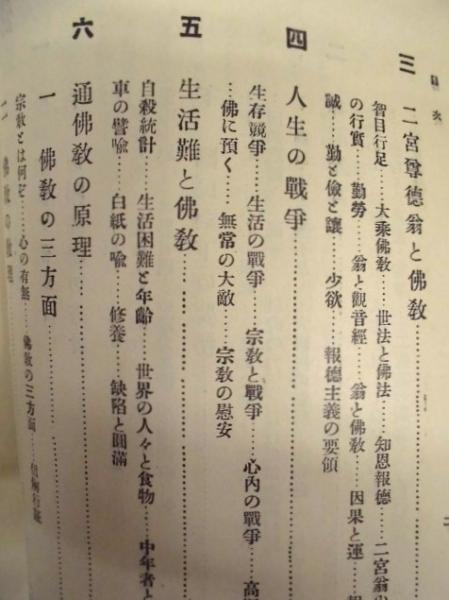 目次
三 二宮尊徳翁と佛教
智目行足……大乘佛教……世法と佛法……知恩報德……二宮翁
の行實……勤勞……翁と觀音經……翁と佛教……因果と運……
誠……勤と儉と讓……少欲……報德主義の要領
四 人生の戰爭
生存競爭……生活の戰爭……宗教と戰爭……心内の戰爭……高
…佛に預く……無常の大敵……宗教の慰安
五 生活難と佛教
自殺統計……生活困難と年齡……世界の人々と食物……中年者と
車の譬喩……白紙の喩……修養……缺陷と圓滿
六 通佛教の原理
一 佛教の三方面
宗教とは何ぞ……心の有無……佛教の三方面……信解行證
二 佛教の